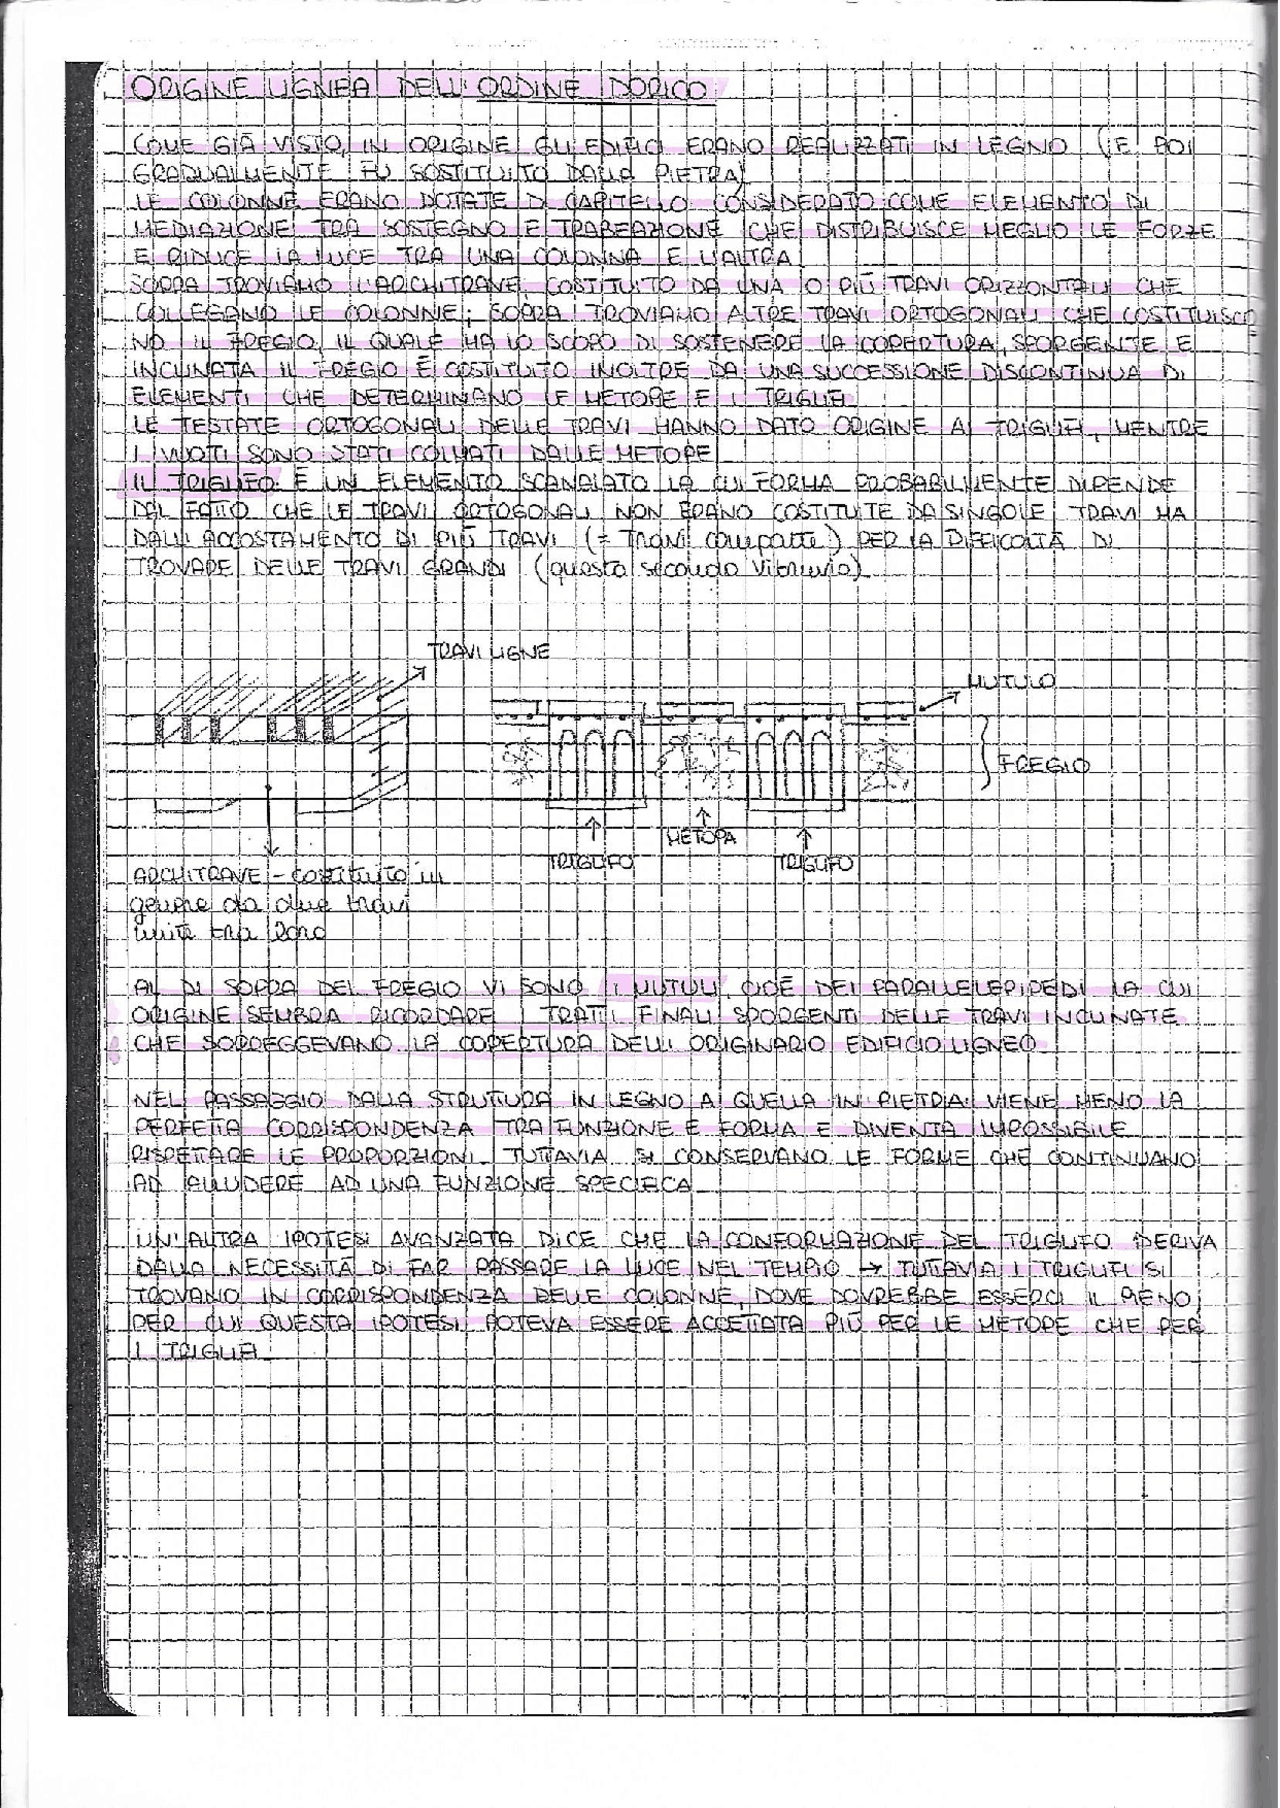 ORIGINE LIGNEA DELL'ORDINE DORICO
COME GIÀ VISTO, IN ORIGINE GLI EDIFICI ERANO REALIZZATI IN LEGNO (E POI
GRADUALMENTE FU SOSTITUITO DALLA PIETRA)
LE COLONNE ERANO DOTATE DI CAPITELLO CONSIDERATO COME ELEMENTO DI
MEDIAZIONE TRA SOSTEGNO E TRABEAZIONE (CHE DISTRIBUISCE MEGLIO LE FORZE
E RIDUCE LA LUCE TRA UNA COLONNA E L'ALTRA
SOPRA TROVIAMO L'ARCHITRAVE, COSTITUITO DA UNA O PIÙ TRAVI ORIZZONTALI CHE
COLLEGANO LE COLONNE; SOPRA TROVIAMO ALTRE TRAVI ORTOGONALI CHE COSTITUISCO
NO IL FREGIO, IL QUALE HA LO SCOPO DI SOSTENERE LA COPERTURA, SPORGENTE E
INCLINATA IL FREGIO È COSTITUITO INOLTRE DA UNA SUCCESSIONE DISCONTINUA DI
ELEMENTI CHE DETERMINANO LE METOPE E I TRIGLIFI
LE TESTATE ORTOGONALI DELLE TRAVI HANNO DATO ORIGINE AI TRIGLIFI, MENTRE
I VUOTI SONO STATI COLMATI DALLE METOPE
IL TRIGLIFO È UN ELEMENTO SCANALATO LA CUI FORMA PROBABILMENTE DIPENDE
DAL FATTO CHE LE TRAVI ORTOGONALI NON ERANO COSTITUITE DA SINGOLE TRAVI MA
DALL'ACCOSTAMENTO DI PIÙ TRAVI (= Travi compatte) PER LA DIFFICOLTÀ DI
TROVARE DELLE TRAVI GRANDI (questo secondo Vitruvio)
TRAVI LIGNE
MUTULO
FREGIO
METOPA
TRIGLIFO
TRIGLIFO
ARCHITRAVE - costituito in
genere da due travi
unite tra loro
AL DI SOPRA DEL FREGIO VI SONO I MUTULI, CIOÈ DEI PARALLELEPIPEDI LA CUI
ORIGINE SEMBRA RICORDARE I TRATTI FINALI SPORGENTI DELLE TRAVI INCLINATE
CHE SORREGGEVANO LA COPERTURA DELL'ORIGINARIO EDIFICIO LIGNEO
NEL PASSAGGIO DALLA STRUTTURA IN LEGNO A QUELLA IN PIETRA VIENE MENO LA
PERFETTA CORRISPONDENZA TRA FUNZIONE E FORMA E DIVENTA IMPOSSIBILE
RISPETTARE LE PROPORZIONI. TUTTAVIA SI CONSERVANO LE FORME CHE CONTINUANO
AD ALLUDERE AD UNA FUNZIONE SPECIFICA
UN'ALTRA IPOTESI AVANZATA DICE CHE LA CONFORMAZIONE DEL TRIGLIFO DERIVA
DALLA NECESSITÀ DI FAR PASSARE LA LUCE NEL TEMPIO → TUTTAVIA I TRIGLIFI SI
TROVANO IN CORRISPONDENZA DELLE COLONNE, DOVE DOVREBBE ESSERCI IL PIENO,
PER CUI QUESTA IPOTESI POTEVA ESSERE ACCETTATA PIÙ PER LE METOPE CHE PER
I TRIGLIFI